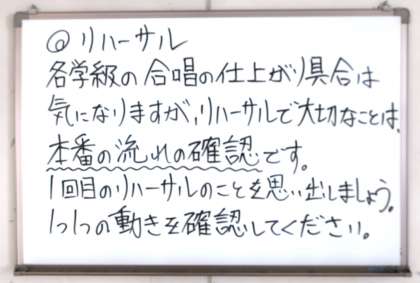 @リハーサル
各学級の合唱の仕上がり具合は
気になりますが、リハーサルで大切なことは、
本番の流れの確認です。
1回目のリハーサルのことを思い出しましょう。
1つ1つの動きを確認してください。